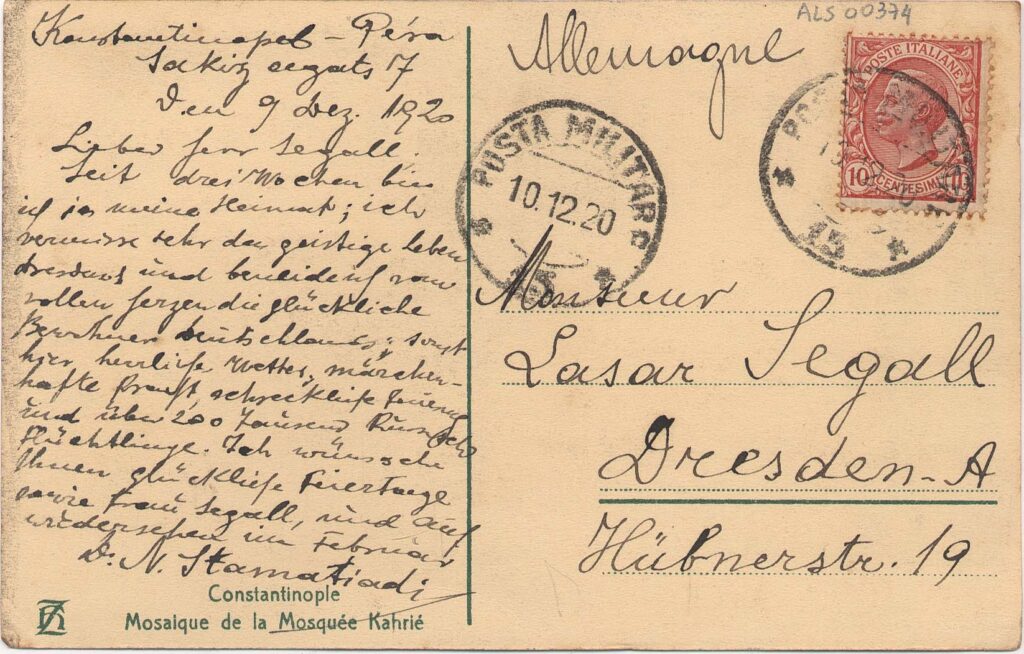 ALS 00374
Konstantinopel – Péra
Sakiz segats 7
Den 9 Dez. 1920
Lieber Herr Segall,
Seit drei Wochen bin
ich in meine Heimat; ich
vermisse sehr den geistige Leben
Dresdens und beneide von
vollen Herzen die glückliche
Bewohner Deutschlands; sonst
hier herrliche Wetter, märchen-
hafte Pracht, schreckliche
und über 200 Tausend
Flüchtlinge. Ich wünsche
Ihnen glückliche Feiertage
sowie Frau Segall, und auf
wiedersehen im Februar
Dr. N. Stamatiadi
Constantinople
Mosaique de la Mosquée Kahrié
Allemagne
POSTE ITALIANE
10 CENTESIMI 10
POSTA MILITARE
10.12.20
15
Monsieur
Lasar Segall
Dresden-A
Hübnerstr. 19